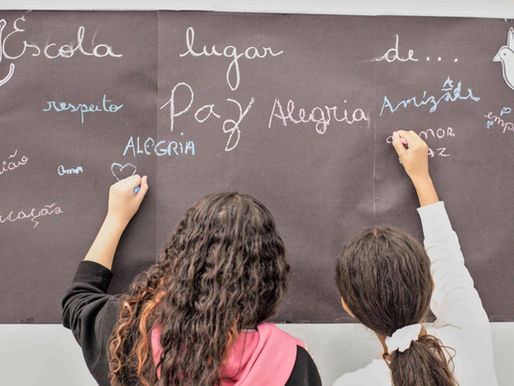 Escola lugar de...
respeito
Paz
Alegria
Amizade
ALEGRIA
AMOR
amor